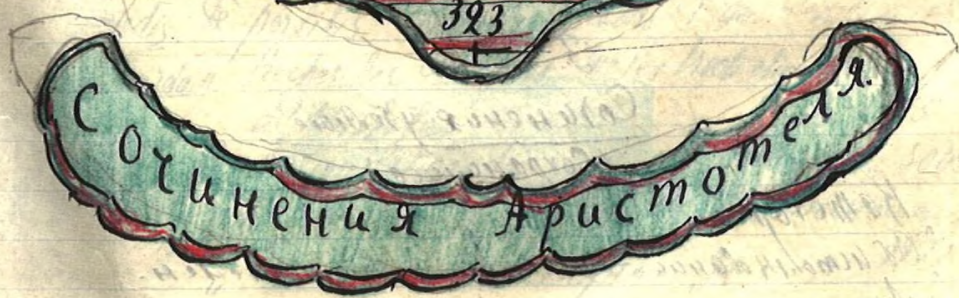 323
Сочинения Аристотеля.